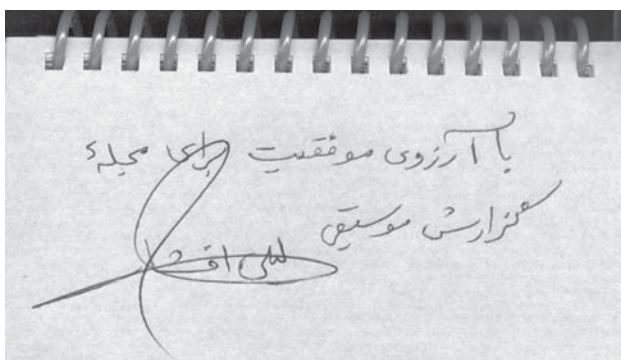 با آرزوی موفقیت برای مجلهٔ
گزارش موسیقی
لیلی افشار